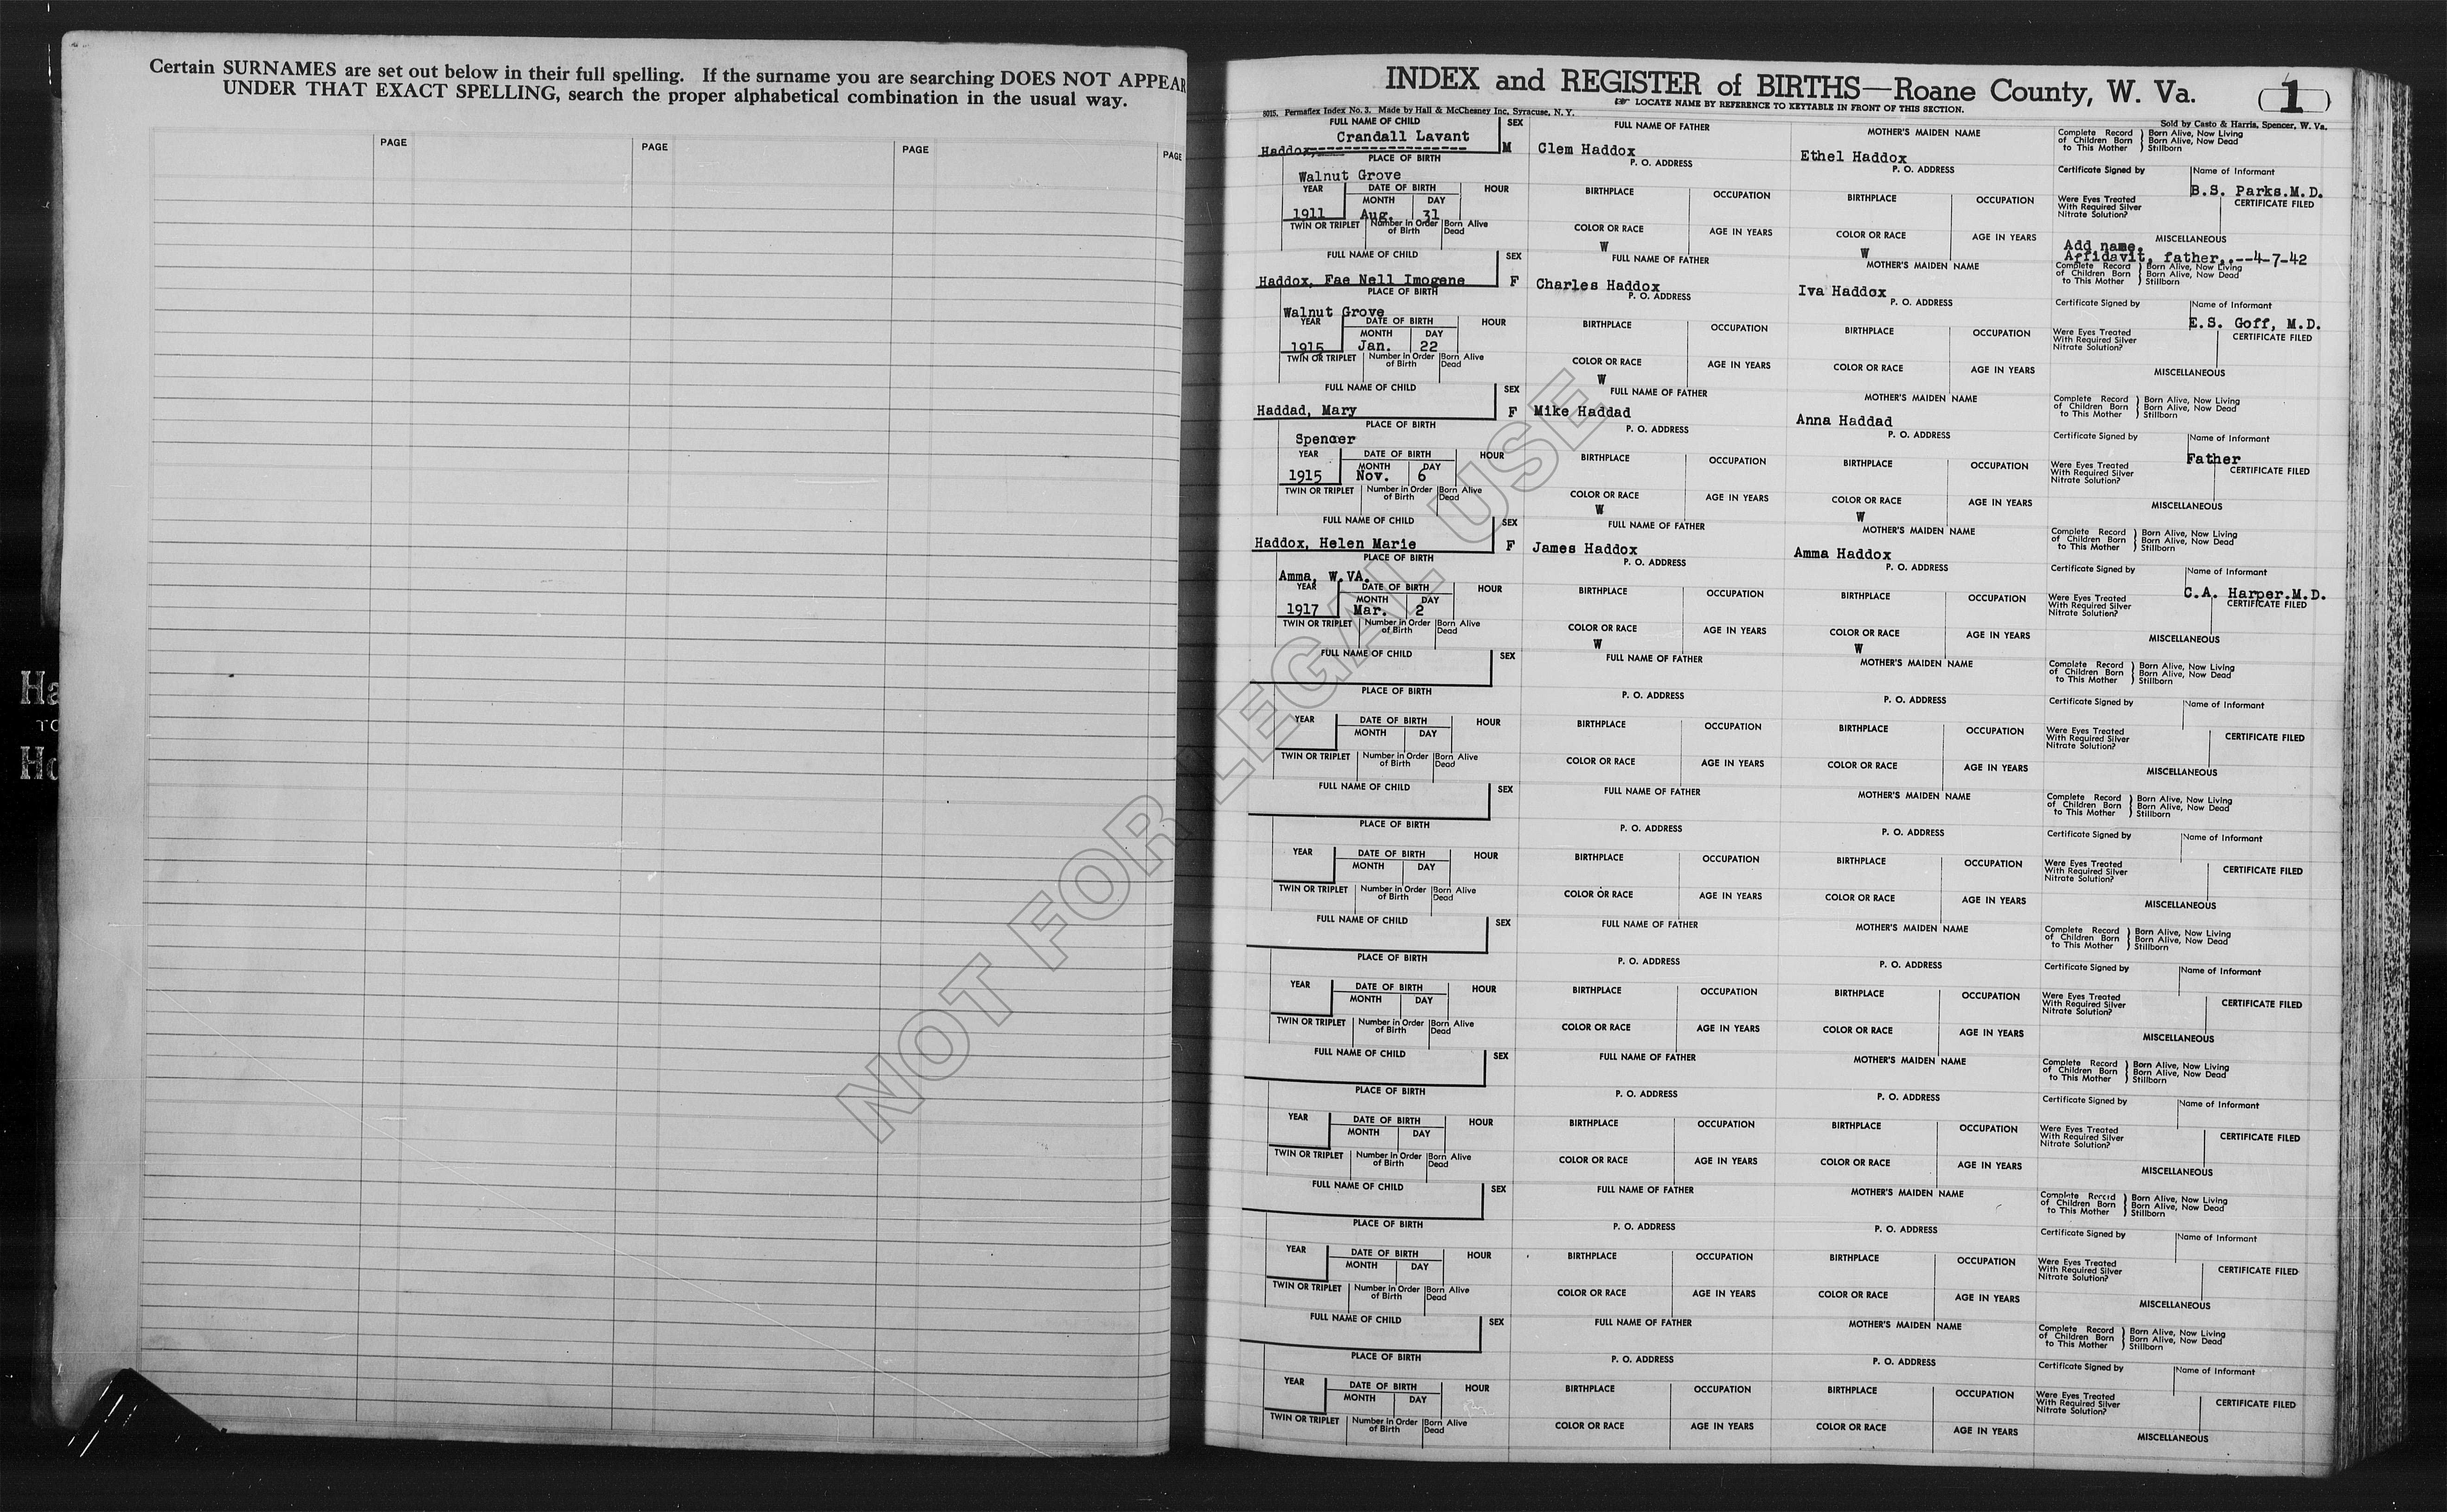 Certain SURNAMES are set out below in their full spelling. If the surname you are searching DOES NOT APPEAR
UNDER THAT EXACT SPELLING, search the proper alphabetical combination in the usual way.
PAGE PAGE PAGE PAGE
Ha
TO
Ho
NOT FOR LEGAL USE
INDEX and REGISTER of BIRTHS—Roane County, W. Va.
1
☞ LOCATE NAME BY REFERENCE TO KEYTABLE IN FRONT OF THIS SECTION.
8015. Permaflex Index No. 3. Made by Hall & McChesney Inc. Syracuse, N. Y.
Sold by Casto & Harris, Spencer, W. Va.
FULL NAME OF CHILD SEX FULL NAME OF FATHER MOTHER'S MAIDEN NAME Complete Record of Children Born to This Mother Born Alive, Now Living Born Alive, Now Dead Stillborn
Crandall Lavant
Haddox, M Clem Haddox Ethel Haddox
PLACE OF BIRTH P. O. ADDRESS P. O. ADDRESS Certificate Signed by Name of Informant
Walnut Grove B.S. Parks.M.D.
YEAR DATE OF BIRTH HOUR BIRTHPLACE OCCUPATION BIRTHPLACE OCCUPATION Were Eyes Treated With Required Silver Nitrate Solution? CERTIFICATE FILED
MONTH DAY
1911 Aug. 31
TWIN OR TRIPLET Number in Order of Birth Born Alive Dead COLOR OR RACE AGE IN YEARS COLOR OR RACE AGE IN YEARS MISCELLANEOUS
W W Add name.
Affidavit, father,.--4-7-42
FULL NAME OF CHILD SEX FULL NAME OF FATHER MOTHER'S MAIDEN NAME Complete Record of Children Born to This Mother Born Alive, Now Living Born Alive, Now Dead Stillborn
Haddox, Fae Nell Imogene F Charles Haddox Iva Haddox
PLACE OF BIRTH P. O. ADDRESS P. O. ADDRESS Certificate Signed by Name of Informant
Walnut Grove E.S. Goff, M.D.
YEAR DATE OF BIRTH HOUR BIRTHPLACE OCCUPATION BIRTHPLACE OCCUPATION Were Eyes Treated With Required Silver Nitrate Solution? CERTIFICATE FILED
MONTH DAY
1915 Jan. 22
TWIN OR TRIPLET Number in Order of Birth Born Alive Dead COLOR OR RACE AGE IN YEARS COLOR OR RACE AGE IN YEARS MISCELLANEOUS
W
FULL NAME OF CHILD SEX FULL NAME OF FATHER MOTHER'S MAIDEN NAME Complete Record of Children Born to This Mother Born Alive, Now Living Born Alive, Now Dead Stillborn
Haddad, Mary F Mike Haddad Anna Haddad
PLACE OF BIRTH P. O. ADDRESS P. O. ADDRESS Certificate Signed by Name of Informant
Spencer Father
YEAR DATE OF BIRTH HOUR BIRTHPLACE OCCUPATION BIRTHPLACE OCCUPATION Were Eyes Treated With Required Silver Nitrate Solution? CERTIFICATE FILED
MONTH DAY
1915 Nov. 6
TWIN OR TRIPLET Number in Order of Birth Born Alive Dead COLOR OR RACE AGE IN YEARS COLOR OR RACE AGE IN YEARS MISCELLANEOUS
W W
FULL NAME OF CHILD SEX FULL NAME OF FATHER MOTHER'S MAIDEN NAME Complete Record of Children Born to This Mother Born Alive, Now Living Born Alive, Now Dead Stillborn
Haddox, Helen Marie F James Haddox Amma Haddox
PLACE OF BIRTH P. O. ADDRESS P. O. ADDRESS Certificate Signed by Name of Informant
Amma, W.VA. C.A. Harper.M.D.
YEAR DATE OF BIRTH HOUR BIRTHPLACE OCCUPATION BIRTHPLACE OCCUPATION Were Eyes Treated With Required Silver Nitrate Solution? CERTIFICATE FILED
MONTH DAY
1917 Mar. 2
TWIN OR TRIPLET Number in Order of Birth Born Alive Dead COLOR OR RACE AGE IN YEARS COLOR OR RACE AGE IN YEARS MISCELLANEOUS
W W
FULL NAME OF CHILD SEX FULL NAME OF FATHER MOTHER'S MAIDEN NAME Complete Record of Children Born to This Mother Born Alive, Now Living Born Alive, Now Dead Stillborn
PLACE OF BIRTH P. O. ADDRESS P. O. ADDRESS Certificate Signed by Name of Informant
YEAR DATE OF BIRTH HOUR BIRTHPLACE OCCUPATION BIRTHPLACE OCCUPATION Were Eyes Treated With Required Silver Nitrate Solution? CERTIFICATE FILED
MONTH DAY
TWIN OR TRIPLET Number in Order of Birth Born Alive Dead COLOR OR RACE AGE IN YEARS COLOR OR RACE AGE IN YEARS MISCELLANEOUS
FULL NAME OF CHILD SEX FULL NAME OF FATHER MOTHER'S MAIDEN NAME Complete Record of Children Born to This Mother Born Alive, Now Living Born Alive, Now Dead Stillborn
PLACE OF BIRTH P. O. ADDRESS P. O. ADDRESS Certificate Signed by Name of Informant
YEAR DATE OF BIRTH HOUR BIRTHPLACE OCCUPATION BIRTHPLACE OCCUPATION Were Eyes Treated With Required Silver Nitrate Solution? CERTIFICATE FILED
MONTH DAY
TWIN OR TRIPLET Number in Order of Birth Born Alive Dead COLOR OR RACE AGE IN YEARS COLOR OR RACE AGE IN YEARS MISCELLANEOUS
FULL NAME OF CHILD SEX FULL NAME OF FATHER MOTHER'S MAIDEN NAME Complete Record of Children Born to This Mother Born Alive, Now Living Born Alive, Now Dead Stillborn
PLACE OF BIRTH P. O. ADDRESS P. O. ADDRESS Certificate Signed by Name of Informant
YEAR DATE OF BIRTH HOUR BIRTHPLACE OCCUPATION BIRTHPLACE OCCUPATION Were Eyes Treated With Required Silver Nitrate Solution? CERTIFICATE FILED
MONTH DAY
TWIN OR TRIPLET Number in Order of Birth Born Alive Dead COLOR OR RACE AGE IN YEARS COLOR OR RACE AGE IN YEARS MISCELLANEOUS
FULL NAME OF CHILD SEX FULL NAME OF FATHER MOTHER'S MAIDEN NAME Complete Record of Children Born to This Mother Born Alive, Now Living Born Alive, Now Dead Stillborn
PLACE OF BIRTH P. O. ADDRESS P. O. ADDRESS Certificate Signed by Name of Informant
YEAR DATE OF BIRTH HOUR BIRTHPLACE OCCUPATION BIRTHPLACE OCCUPATION Were Eyes Treated With Required Silver Nitrate Solution? CERTIFICATE FILED
MONTH DAY
TWIN OR TRIPLET Number in Order of Birth Born Alive Dead COLOR OR RACE AGE IN YEARS COLOR OR RACE AGE IN YEARS MISCELLANEOUS
FULL NAME OF CHILD SEX FULL NAME OF FATHER MOTHER'S MAIDEN NAME Complete Record of Children Born to This Mother Born Alive, Now Living Born Alive, Now Dead Stillborn
PLACE OF BIRTH P. O. ADDRESS P. O. ADDRESS Certificate Signed by Name of Informant
YEAR DATE OF BIRTH HOUR BIRTHPLACE OCCUPATION BIRTHPLACE OCCUPATION Were Eyes Treated With Required Silver Nitrate Solution? CERTIFICATE FILED
MONTH DAY
TWIN OR TRIPLET Number in Order of Birth Born Alive Dead COLOR OR RACE AGE IN YEARS COLOR OR RACE AGE IN YEARS MISCELLANEOUS
FULL NAME OF CHILD SEX FULL NAME OF FATHER MOTHER'S MAIDEN NAME Complete Record of Children Born to This Mother Born Alive, Now Living Born Alive, Now Dead Stillborn
PLACE OF BIRTH P. O. ADDRESS P. O. ADDRESS Certificate Signed by Name of Informant
YEAR DATE OF BIRTH HOUR BIRTHPLACE OCCUPATION BIRTHPLACE OCCUPATION Were Eyes Treated With Required Silver Nitrate Solution? CERTIFICATE FILED
MONTH DAY
TWIN OR TRIPLET Number in Order of Birth Born Alive Dead COLOR OR RACE AGE IN YEARS COLOR OR RACE AGE IN YEARS MISCELLANEOUS